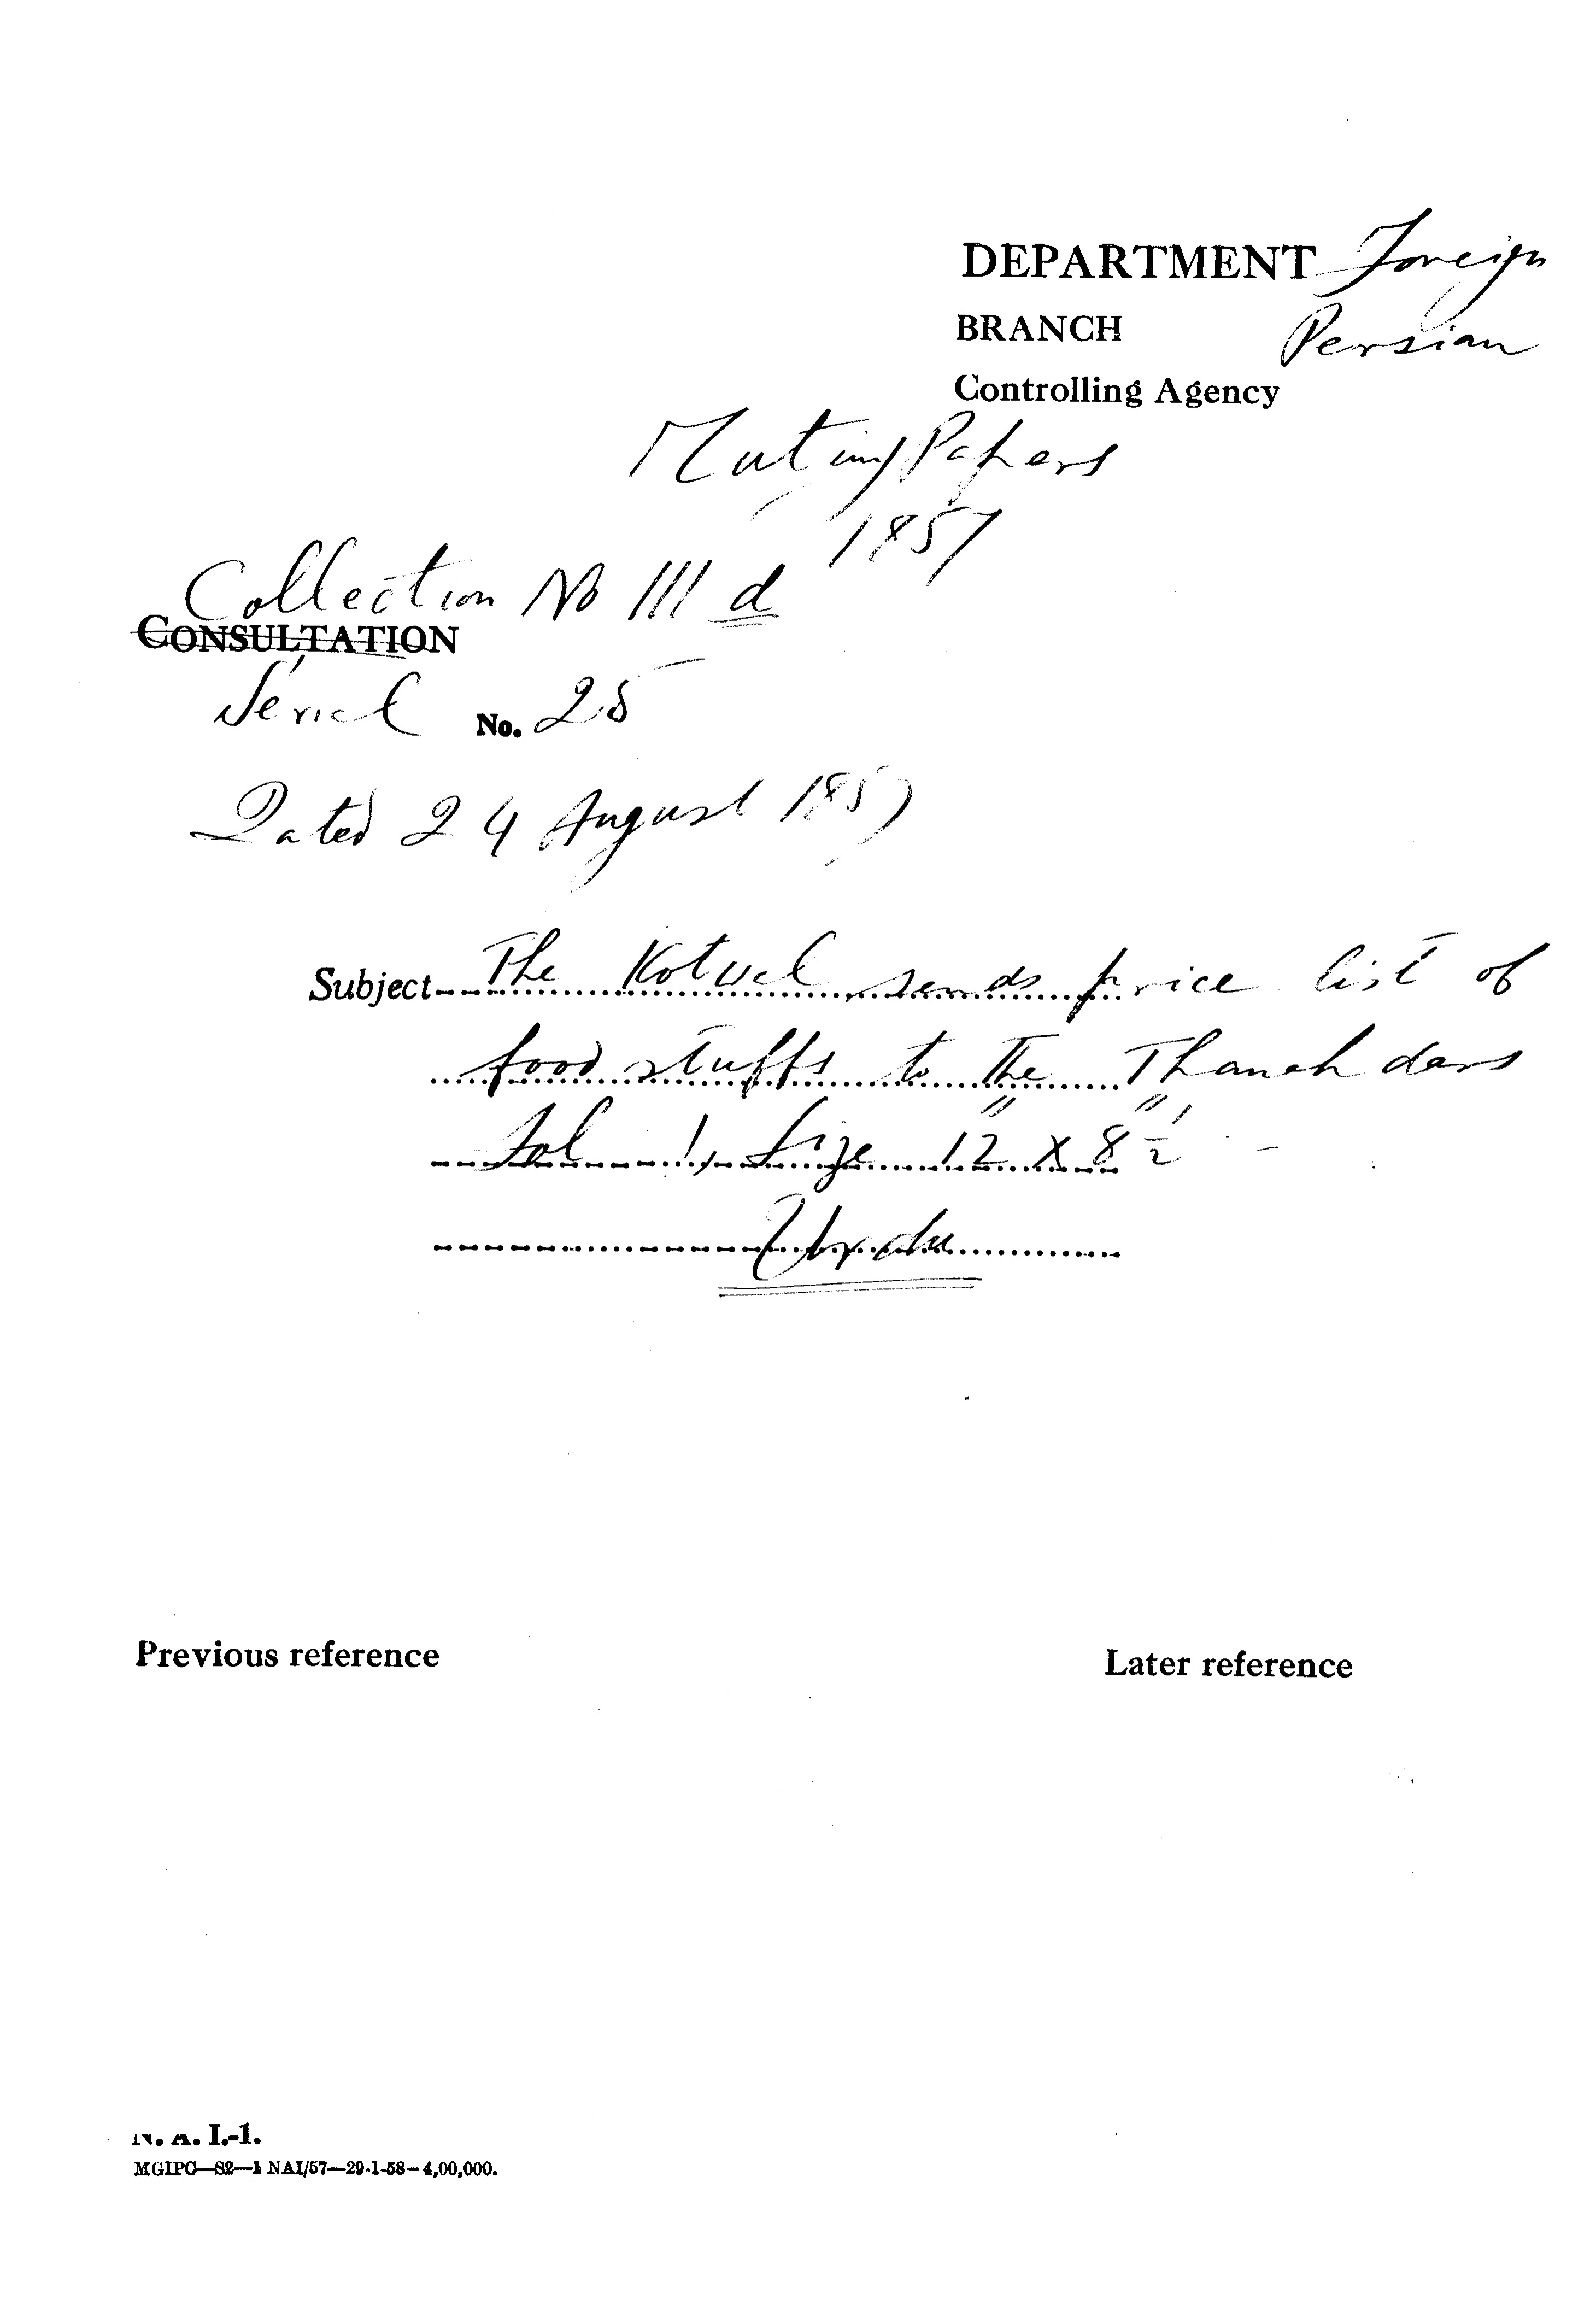 DEPARTMENT Foreign
BRANCH Persian
Controlling Agency
Mutiny Papers
1857
Collection No III d
CONSULTATION
Serial No. 25
Dated 24 August 1857
Subject The Kotwal sends price list of
food stuffs to the Thanahdars
Fol 1, Size 12" x 8 1/2"
Urdu
Previous reference
Later reference
N. A. I.-1.
MGIPC—S2—1 NAI/57—29-1-58—4,00,000.